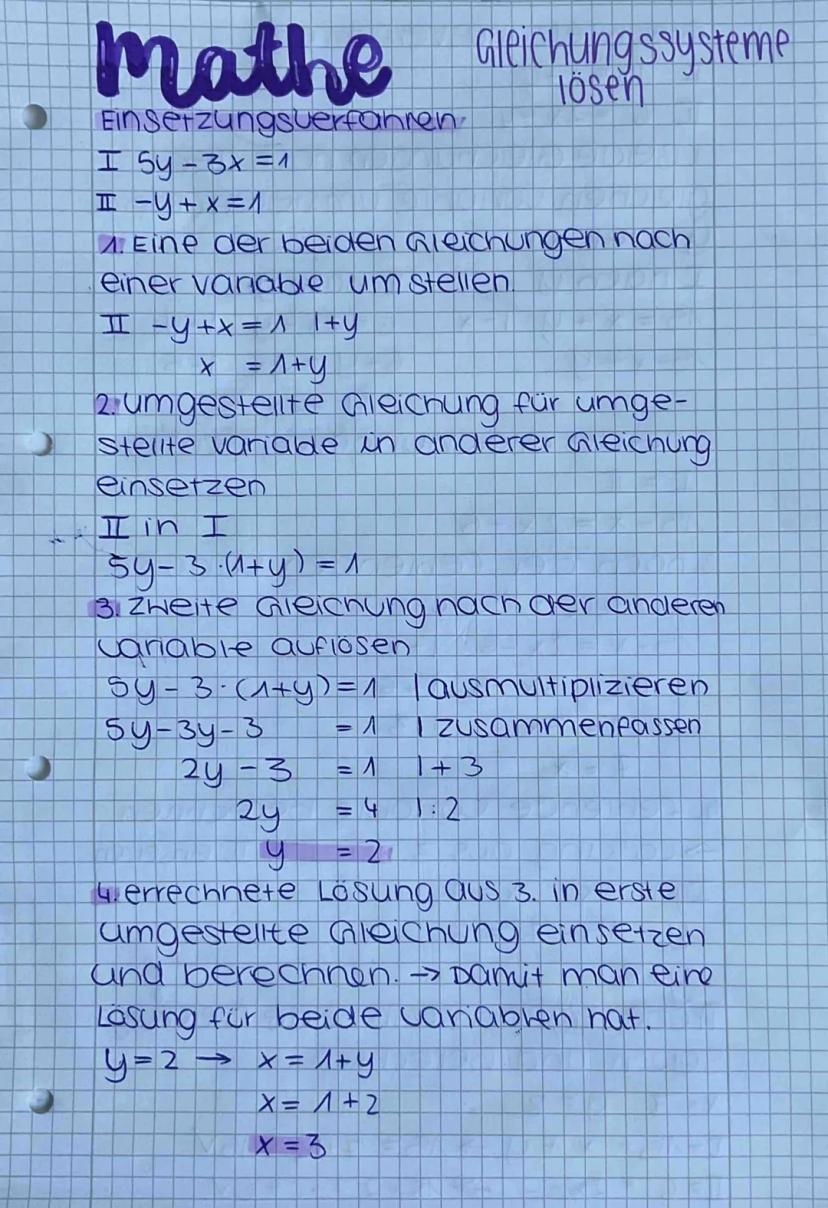 Mathe
Gleichungssysteme
lösen
Einsetzungsverfahren
I 5y - 3x = 1
II -y + x = 1
1. Eine der beiden Gleichungen nach
einer Variable umstellen.
II -y + x = 1 |+y
x = 1+y
2. umgestellte Gleichung für umge-
stellte Variable in anderer Gleichung
einsetzen
II in I
5y - 3 · (1+y) = 1
3. Zweite Gleichung nach der anderen
Variable auflösen
5y - 3 · (1+y) = 1 | ausmultiplizieren
5y - 3y - 3 = 1 | zusammenfassen
2y - 3 = 1 | + 3
2y = 4 | : 2
y = 2
4. errechnete Lösung aus 3. in erste
umgestellte Gleichung einsetzen
und berechnen. → Damit man eine
Lösung für beide Variablen hat.
y = 2 → x = 1+y
x = 1 + 2
x = 3